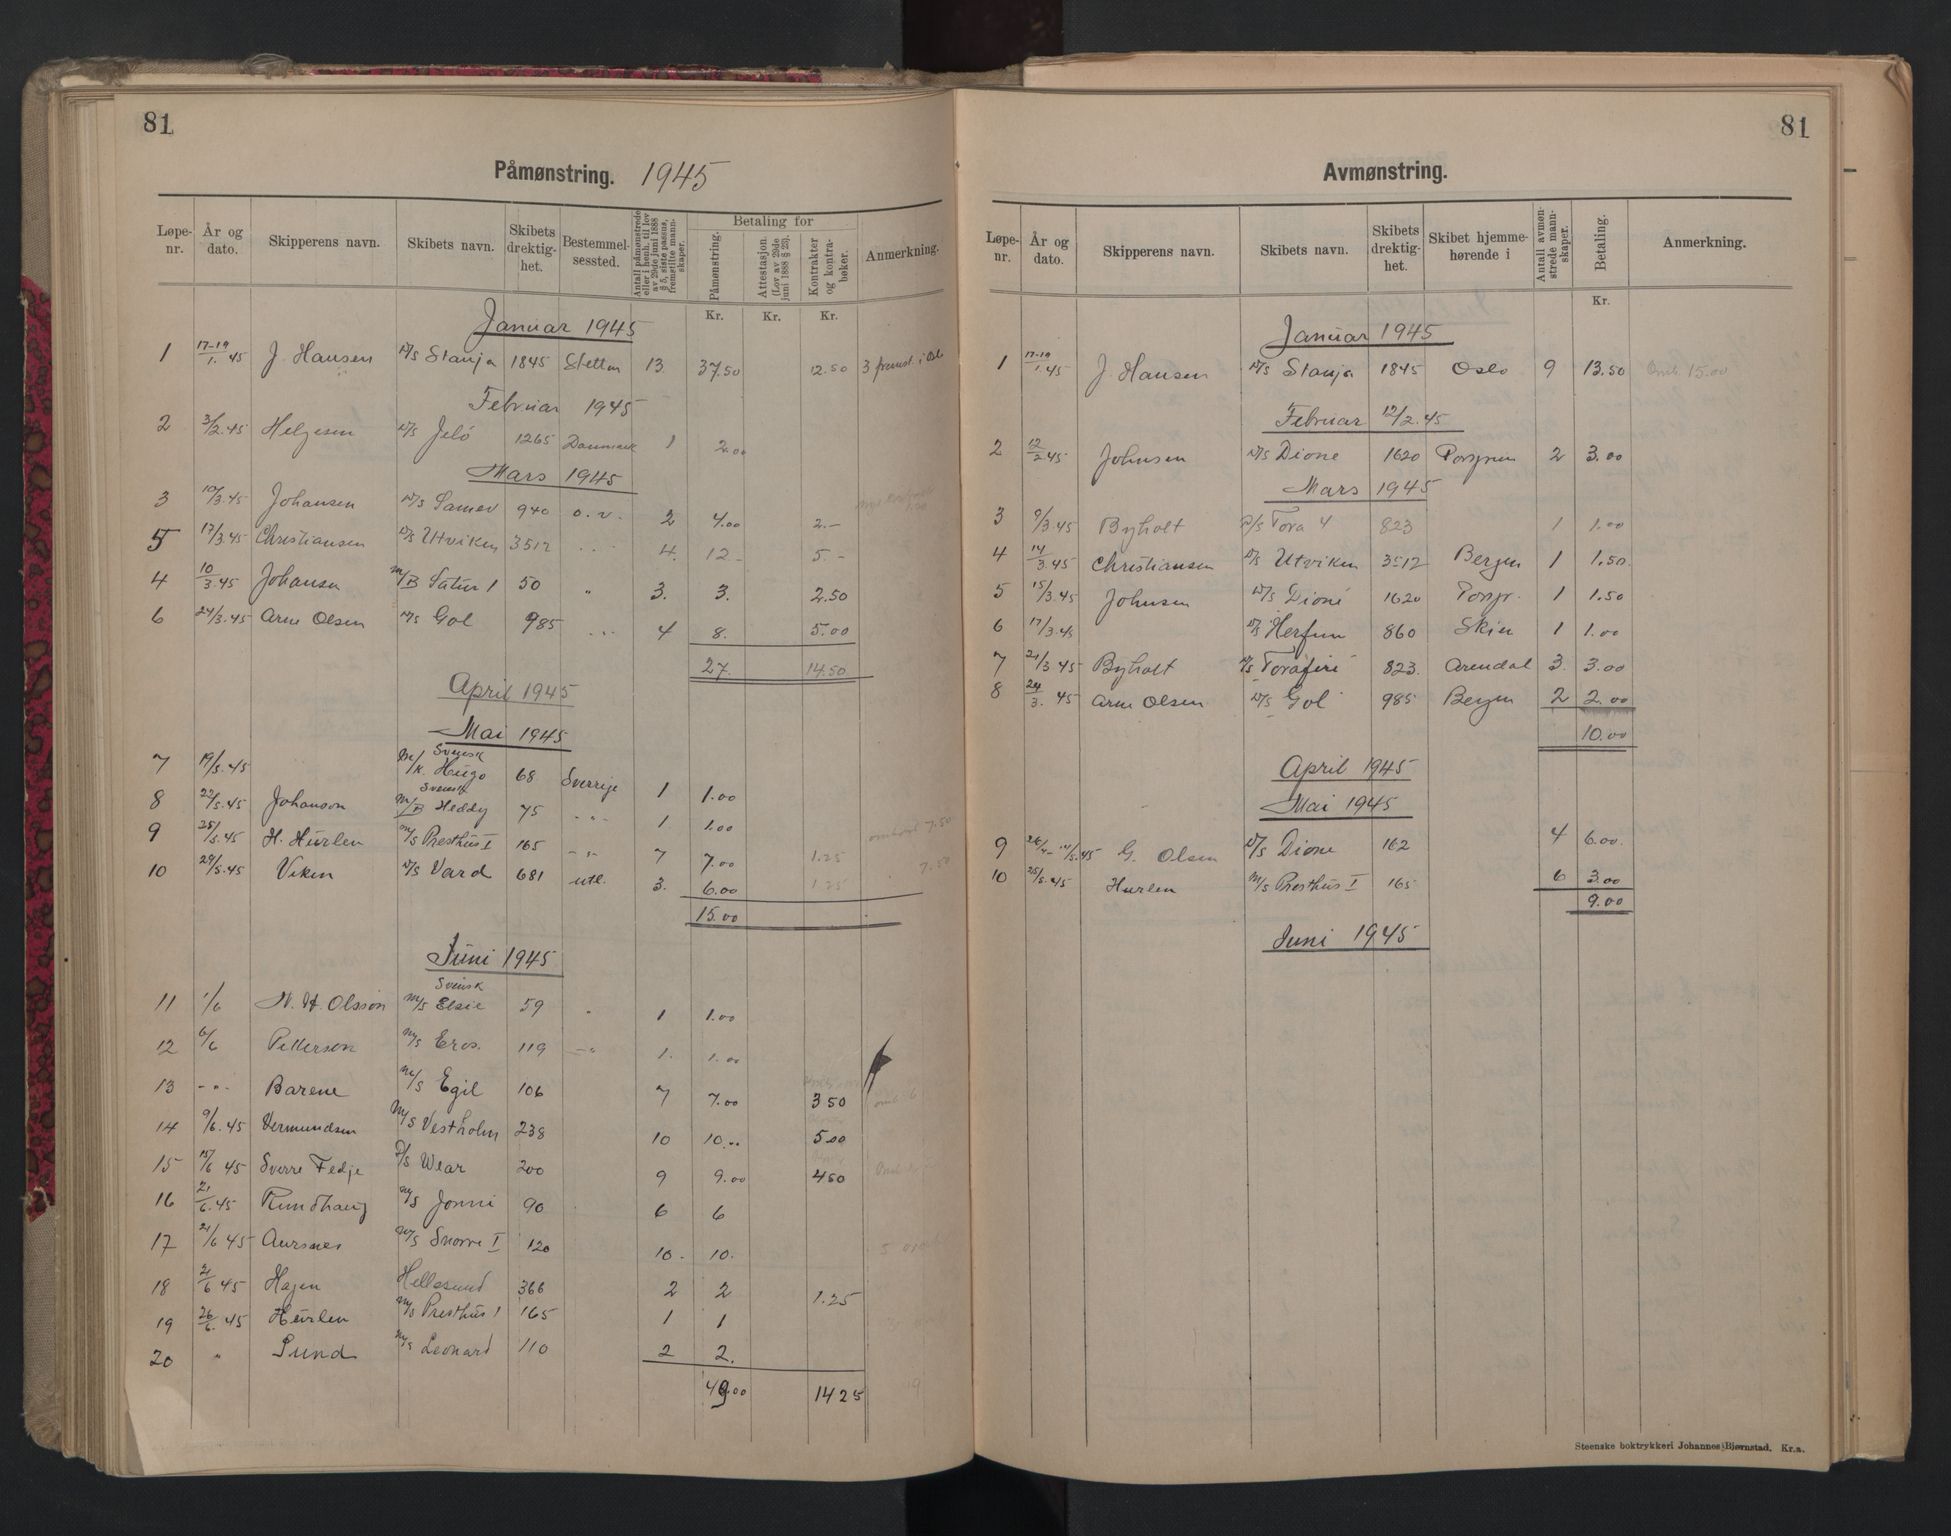 81
Påmønstring. 1945
Løpe-nr. | År og dato. | Skipperens navn. | Skibets navn. | Skibets drektig-het. | Bestemmel-sessted. | Antall påmønstrede eller i henh. til lov av 29de juni 1888 § 5, siste passus, fremstilte mann-skaper. | Betaling for | Påmønstring. | Attestasjon. (Lov av 29de juni 1888 § 23). | Kontrakter og kontra-bøker. | Anmerkning.
Kr. Kr. Kr.
Januar 1945
1 17-19/1.45 J. Hansen D/S Stanja 1845 Stettin 13 37.50 12.50 3 fremst. i Osl
Februar 1945
2 3/2.45 Helgesen D/S Jelö 1265 Danmark 1 2.00
Mars 1945
3 10/3.45 Johansen D/S Samev 940 o.v. 2 4.00 2.-
5 17/3.45 Christiansen D/S Utviken 3512 " 4. 12 - 5 -
4 10/3.45 Johansen M/B Satur 1 50 " 3. 3. 2.50
6 24/3.45 Arne Olsen D/S Gol 985 " 4 8. 5.00
27. 14.50
April 1945
Mai 1945
7 19/5.45 Svensk M/K. Hugo 68 Sverrige 1 1.00
8 22/5.45 Johanson Svensk M/B Heddy 75 - " - 1 1.00
9 25/5.45 H. Hurlen M/S Presthus I 165 - " - 7 7.00 1.25 7.50
10 29/5.45 Viken D/S Vard 681 utl. 3. 6.00 1.25 7.50
15.00
Juni 1945
11 1/6 N. H. Olsson Svensk M/S Elsie 59 " 1 1.00
12 6/6 Petterson M/S Eros. 119 - " 1. 1.00
13 - " - Barene M/S Egil 106 7 7.00 3 50
14 9/6.45 Vermundsen M/S Vestholm 238 10 10.00 5.00
15 15/6 45 Sverre Fedje D/S Wear 200 9 9.00 4 50
16 21/6.45 Rundhaug M/S Jonni 90 6 6
17 21/6 45 Aursnes M/S Snorre I 120 10. 10.
18 21/6 45 Hagen Hellesund 366 2 2 1.25
19 26/6. 45 Hurlen M/S Presthus 1 165 1 1
20 " Sund M/S Leonard 110 2 2.
49.00 14 25
81
Avmønstring.
Løpe-nr. | År og dato. | Skipperens navn. | Skibets navn. | Skibets drektig-het. | Skibet hjemme-hørende i | Antall avmøn-strede mann-skaper. | Betaling. | Anmerkning.
Kr.
Januar 1945
1 17-19/1.45 J. Hansen D/S Stanja 1845 Oslo 9 13.50 15.00
Februar 12/2.45
2 12/2 45 Johnsen D/S Dione 1620 Porsgrun 2 3.00
Mars 1945
3 9/3.45 Byholt D/S Tora 4 823 1 1.00
4 14/3.45 Christiansen D/S Utviken 3512 Bergen 1 1.50.
5 15/3.45 Johnsen D/S Dione 1620 Porsgr. 1 1.50
6 17/3.45 D/S Herfun 860 Skien 1 1.00
7 21/3 45 Byholt D/S Torafiri 823. Arendal 3. 3.00
8 24/3. 45 Arne Olsen D/S Gol 985 Bergen 2 2.00
10.00
April 1945
Mai 1945
9 26/4-14/5.45 G. Olsen D/S Dione 162 4 6.00.
10 25/5.45 Hurlen M/S Presthus I 165 6 3.00
9.00
Juni 1945
Steenske boktrykkeri Johannes Bjørnstad. Kr.a.